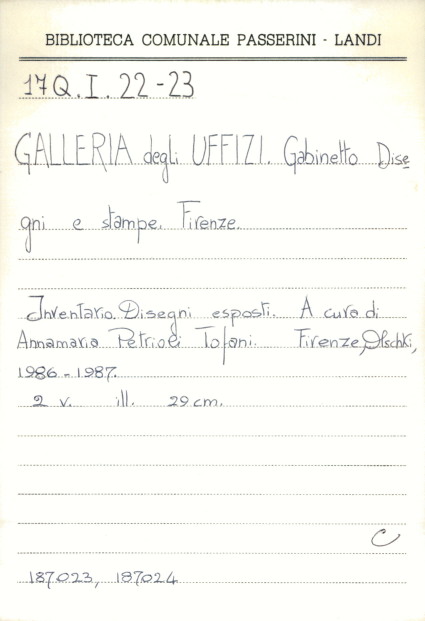 BIBLIOTECA COMUNALE PASSERINI - LANDI
17Q.I.22-23
GALLERIA degli UFFIZI. Gabinetto Dise
gni e stampe. Firenze.
Inventario. Disegni esposti. A cura di
Annamaria Petrioli Tofani. Firenze, Olschki,
1986-1987.
2 v. ill. 29 cm.
C
187023, 187024